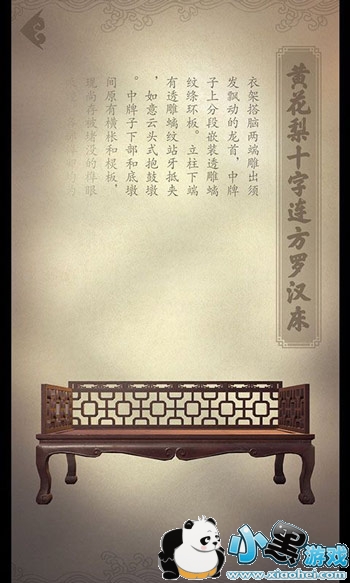 黄花梨十字连方罗汉床
衣架搭脑两端雕出须
发飘动的龙首，中牌
子上分段嵌装透雕螭
纹绦环板。立柱下端
有透雕螭纹站牙抵夹
，如意云头式抱鼓墩
。中牌子下部和底墩
间原有横枨和棂板，
现尚存被堵没的榫眼
小黑游戏
www.xiaohei.com